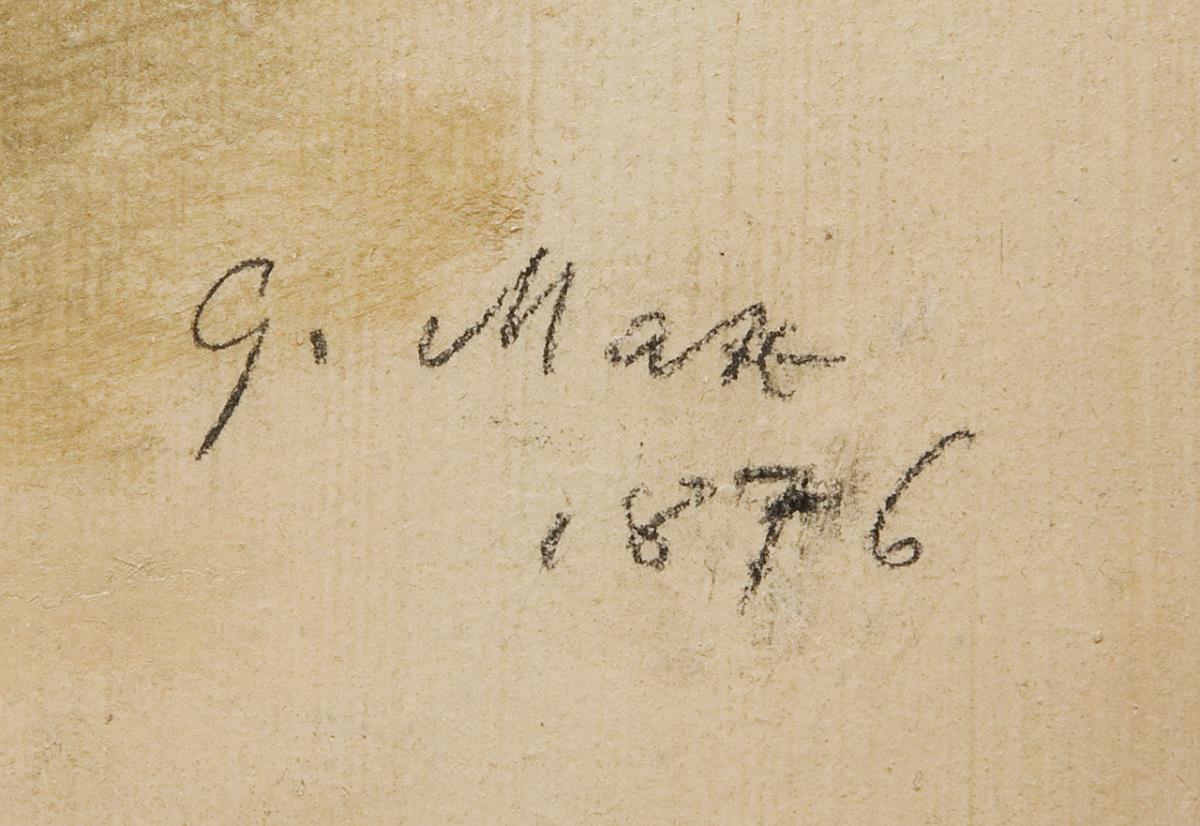 G. Max
1876